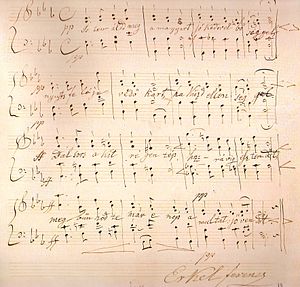 pp Isten áldd meg a magyart jó kedvvel bő séggel
nyujts feléje védő kart, ha küzd ellen ség gel
ff Bal sors a kit régen tép, hozz rá víg esz ten dőt
meg bűnhődte már e nép a multat s jövendőt
ppp
Erkel Ferencz